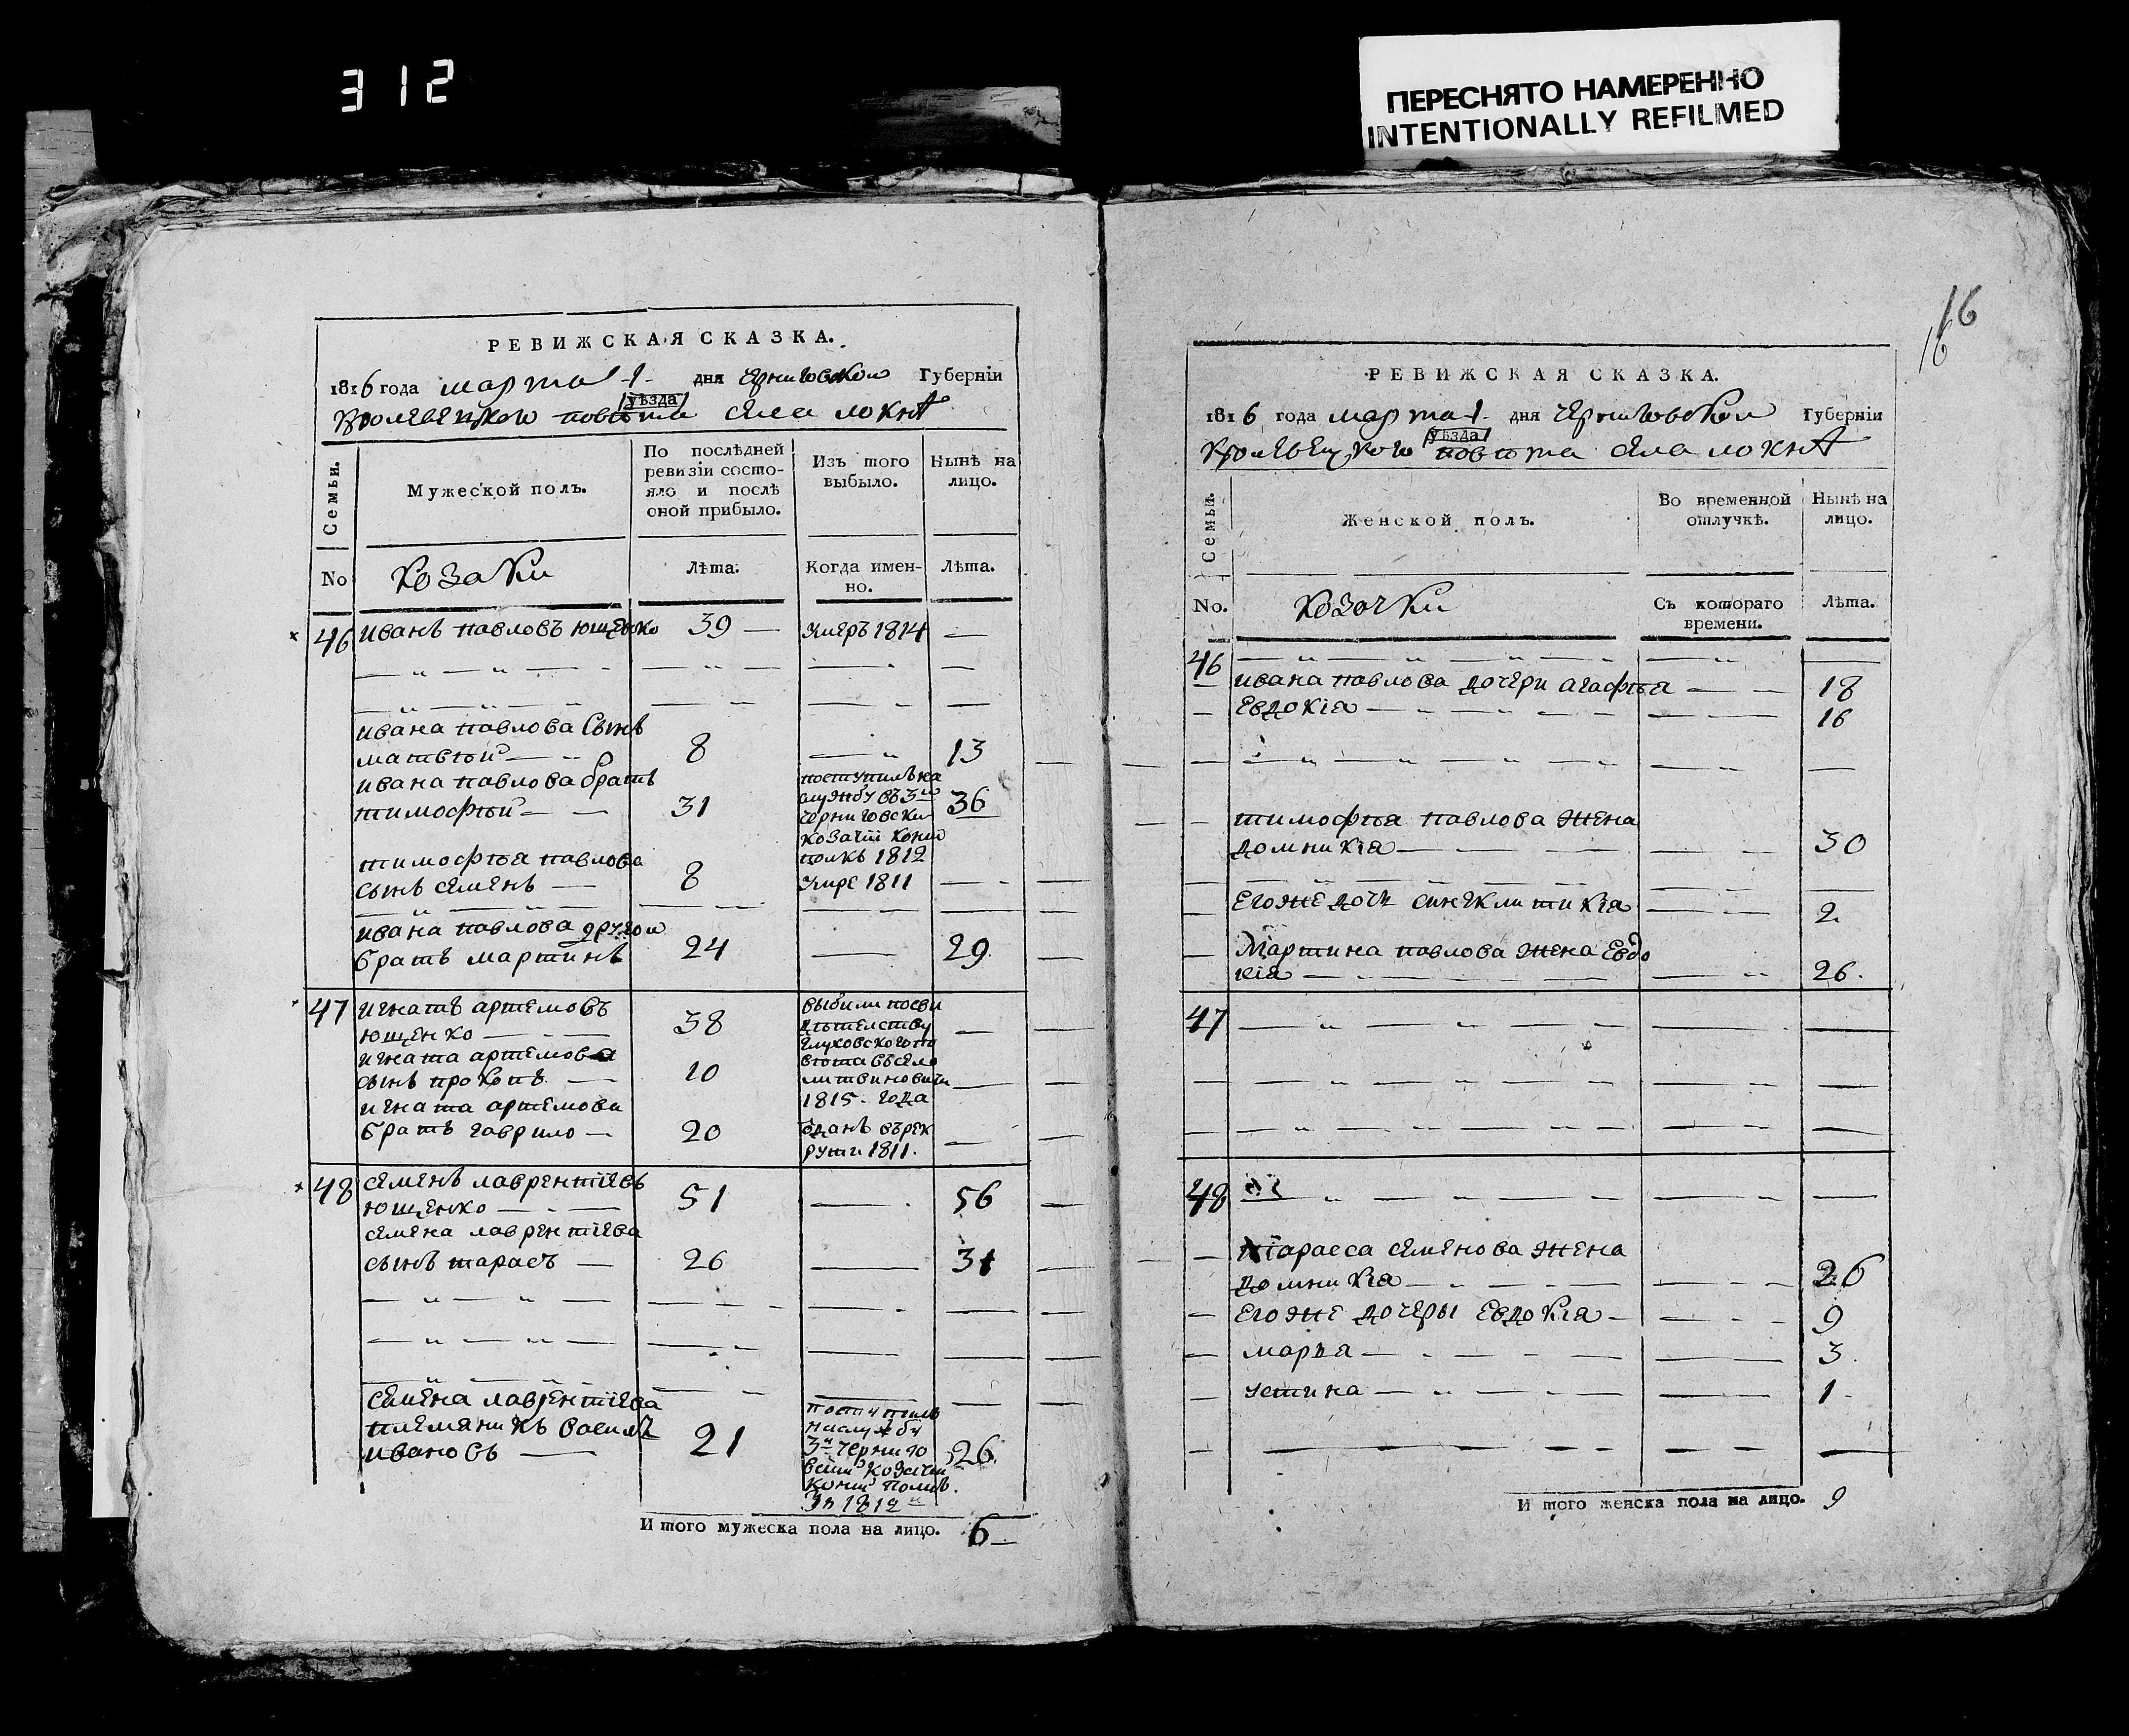 312
ПЕРЕСНЯТО НАМЕРЕННО
INTENTIONALLY REFILMED
РЕВИЖСКАЯ СКАЗКА.
1816 года марта 1 дня Черниговской Губерніи
уѣзда
Кролевецкого повѣта села локнѣ
Семьи.
Мужеской полъ.
По послѣдней
ревизіи состо-
яло и послѣ
оной прибыло.
Изъ того
выбыло.
Нынѣ на
лицо.
No
козаки
Лѣта.
Когда имен-
но.
Лѣта.
46 иванъ павловъ ющенко 39 — умеръ 1814 —
ивана павлова сынъ
матвѣй 8 — 13
ивана павлова братъ
тимофѣй 31 36
поступилъ на
службу въ 3й
черниговски
козачій коній
полкъ 1812
тимофѣя павлова
сынъ семенъ — 8 умре 1811 —
ивана павлова другой
братъ мартинъ 24 — 29.
47 игнатъ артемовъ
ющенко 38 —
игната артемова
сынъ прокопъ — 10 —
выбили посви
дѣтелству
глуховского по
вѣта въ село
литвиновичи
1815. года
игната артемова
братъ гаврило — 20 —
отданъ въ рек
рути 1811.
48 семенъ лаврентіевъ
ющенко 51 — 56
семена лаврентіева
сынъ тарасъ — 26 — 31
семена лаврентіева
племяникъ василь
ивановъ — 21 26.
поступилъ
на службу
3й черниго
вскій козачій
коній полкъ.
1812
И того мужеска пола на лицо. 6
16
16
РЕВИЖСКАЯ СКАЗКА.
1816 года марта 1 дня Черниговской Губерніи
уѣзда
Кролевецкого повѣта села локнѣ
Семьи.
Женской полъ.
Во временной
отлучкѣ.
Нынѣ на
лицо.
No.
козачки
Съ котораго
времени.
Лѣта.
46
ивана павлова дочери агафѣя — 18
Евдокіа — 16
тимофѣя павлова жена
домникіа — 30
Егоже дочь синеклитикіа — 2
Мартина павлова жена Евдо
кіа — 26.
47
48
тараса семенова жена
домникіа — 26
Егоже дочеры Евдокіа — 9
марѣя — 3.
устина — 1
И того женска пола на лицо. 9